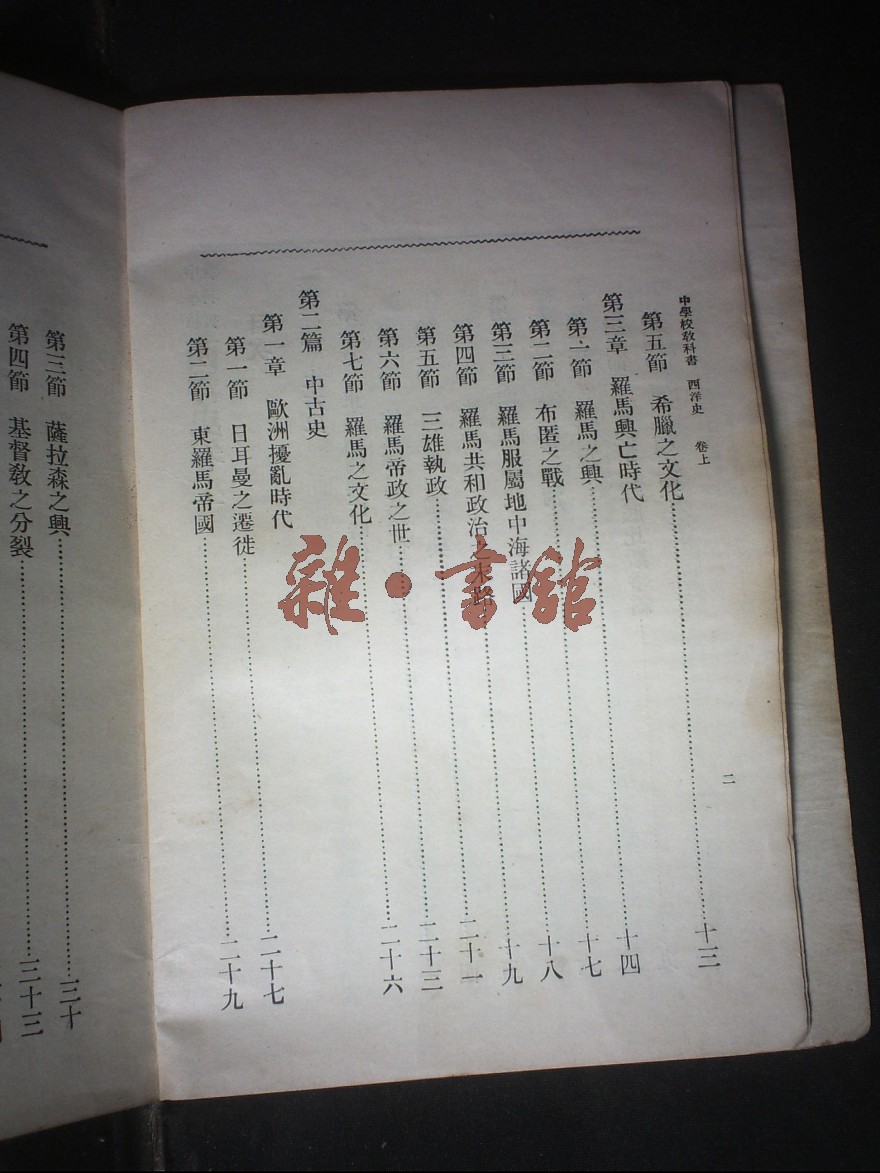 中學校教科書 西洋史 卷上
二
第五節 希臘之文化……十三
第三章 羅馬興亡時代
第一節 羅馬之興……十四
第二節 布匿之戰……十七
第三節 羅馬服屬地中海諸國……十八
第四節 羅馬共和政治之末路……十九
第五節 三雄執政……二十一
第六節 羅馬帝政之世……二十三
第七節 羅馬之文化……二十六
第二篇 中古史
第一章 歐洲擾亂時代
第一節 日耳曼之遷徙……二十七
第二節 東羅馬帝國……二十九
第三節 薩拉森之興……三十
第四節 基督教之分裂……三十三
雜·書館